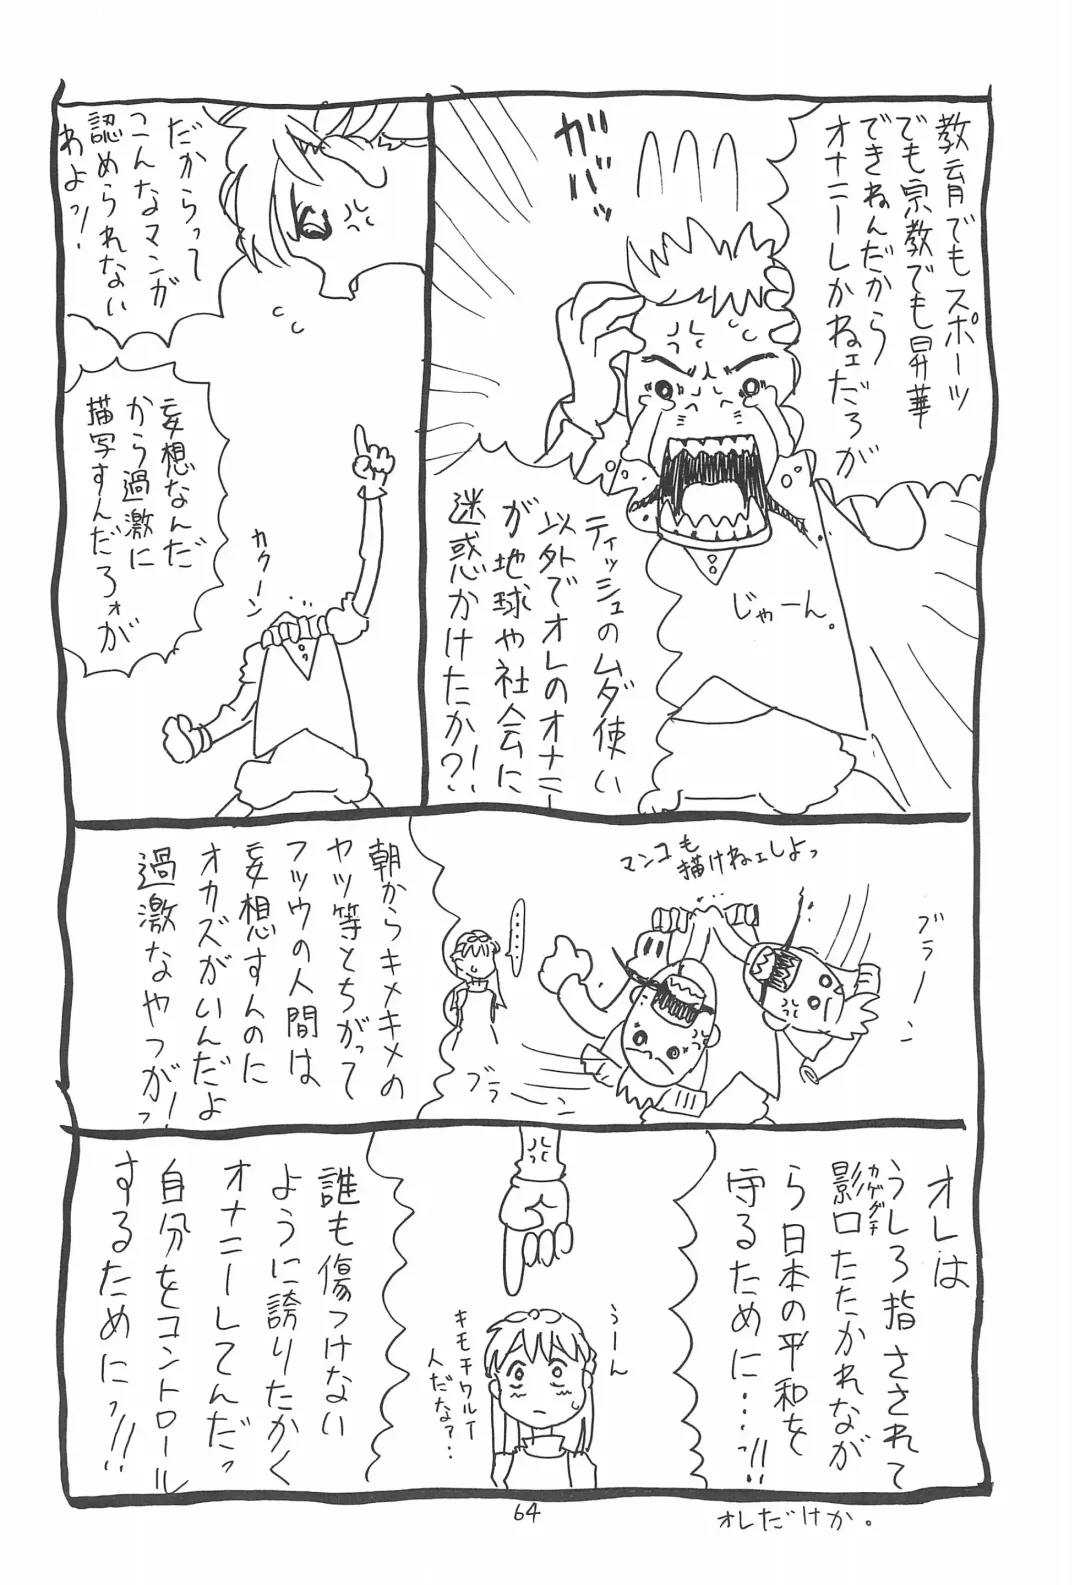 教育でもスポーツ
でも宗教でも昇華
できねんだから
オナニーしかねェだろが
ガバッ
ティッシュのムダ使い
以外でオレのオナニー
が地球や社会に
迷惑かけたか?!!
じゃーん。
だからって
こんなマンガ
認められない
わよッ!
妄想なんだ
から過激に
描写すんだろォが
カクーン
マンコも
描けねェしよっ
ブラーン
ブラーン
・・・・・
朝からキメキメの
ヤツ等とちがって
フツウの人間は
妄想すんのに
オカズがいんだよ
過激なやつがっ!
オレは
うしろ指さされて
影口たたかれながら
カゲグチ
日本の平和を
守るために…っ!!
うーん
キモチワルイ
人だな?…
誰も傷つけない
ように誇りたかく
オナニーしてんだっ
自分をコントロール
するためにっ!!
64
オレだけか。